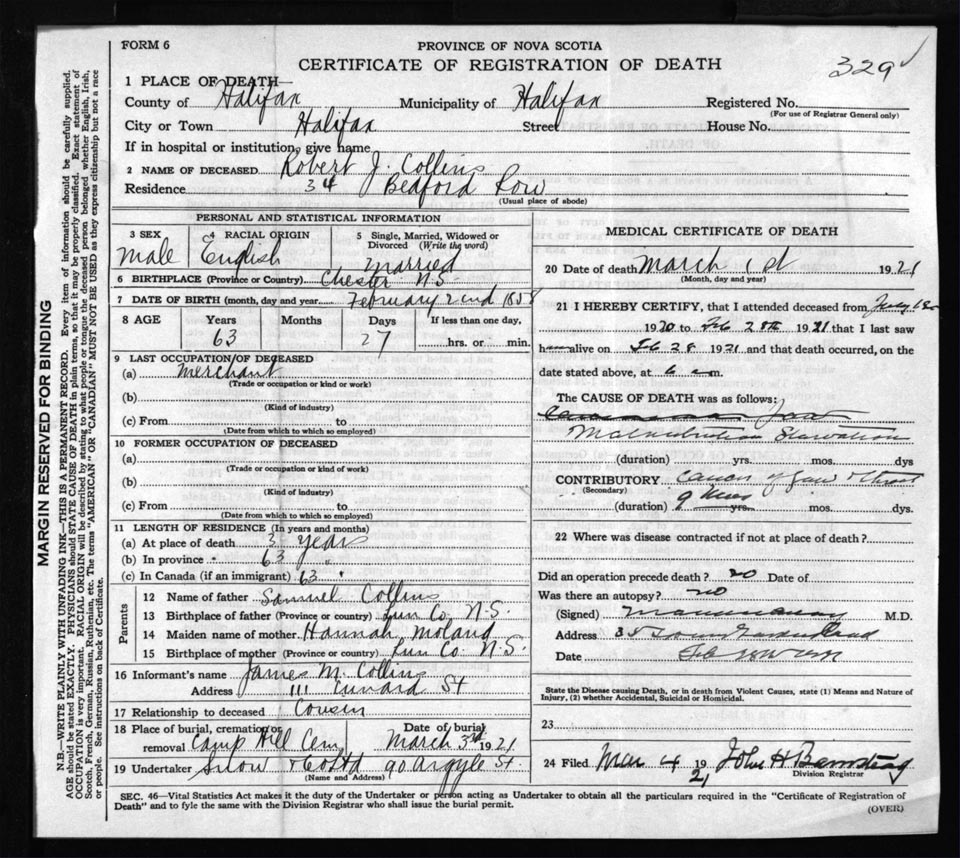 FORM 6
PROVINCE OF NOVA SCOTIA
CERTIFICATE OF REGISTRATION OF DEATH
329
1 PLACE OF DEATH—
County of Halifax Municipality of Halifax Registered No.
(For use of Registrar General only)
City or Town Halifax Street House No.
If in hospital or institution, give name
2 NAME OF DECEASED Robert J. Collins
Residence 34 Bedford Row
(Usual place of abode)
PERSONAL AND STATISTICAL INFORMATION
3 SEX 4 RACIAL ORIGIN 5 Single, Married, Widowed or
Divorced (Write the word)
Male English Married
6 BIRTHPLACE (Province or Country) Chester N.S.
7 DATE OF BIRTH (month, day and year) February 2nd 1858
8 AGE Years Months Days If less than one day,
63 27 hrs. or min.
9 LAST OCCUPATION OF DECEASED
(a) Merchant
(Trade or occupation or kind or work)
(b)
(Kind of industry)
(c) From to
(Date from which to which so employed)
10 FORMER OCCUPATION OF DECEASED
(a)
(Trade or occupation or kind of work)
(b)
(Kind of industry)
(c) From to
(Date from which to which so employed)
11 LENGTH OF RESIDENCE (In years and months)
(a) At place of death 3 years
(b) In province 63 "
(c) In Canada (if an immigrant) 63 "
Parents
12 Name of father Samuel Collins
13 Birthplace of father (Province or country) Lun Co. N.S.
14 Maiden name of mother Hannah Moland
15 Birthplace of mother (Province or country) Lun Co. N.S.
16 Informant's name James M. Collins
Address 111 St
17 Relationship to deceased Cousin
18 Place of burial, cremation or Date of burial
removal Camp Hill Cem March 3rd 1921
19 Undertaker Snow & Co Ltd 90 Argyle St.
(Name and Address)
MEDICAL CERTIFICATE OF DEATH
20 Date of death March 1st 1921
(Month, day and year)
21 I HEREBY CERTIFY, that I attended deceased from July
1920 to Feb 28th 1921 that I last saw
h alive on Feb 28 1921 and that death occurred, on the
date stated above, at 6 a m.
The CAUSE OF DEATH was as follows:
Malnutrition Starvation
(duration) yrs. mos. dys
CONTRIBUTORY Cancer of Jaw & Throat
(Secondary)
(duration) 9 yrs. mos. dys.
22 Where was disease contracted if not at place of death?
Did an operation precede death? no Date of
Was there an autopsy? no
(Signed) M.D.
Address 35
Date
State the Disease causing Death, or in death from Violent Causes, state (1) Means and Nature of
Injury, (2) whether Accidental, Suicidal or Homicidal.
23
24 Filed Mar 4 1921 John H Barnstead
Division Registrar
SEC. 46—Vital Statistics Act makes it the duty of the Undertaker or person acting as Undertaker to obtain all the particulars required in the "Certificate of Registration of
Death" and to fyle the same with the Division Registrar who shall issue the burial permit.
(OVER)
MARGIN RESERVED FOR BINDING
N.B.—WRITE PLAINLY WITH UNFADING INK—THIS IS A PERMANENT RECORD. Every item of information should be carefully supplied.
AGE should be stated EXACTLY. PHYSICIANS should STATE CAUSE OF DEATH in plain terms, so that it may be properly classified. Exact statement of
OCCUPATION is very important. RACIAL ORIGIN will be described by stating to what people or tongue the deceased person belonged whether English, Irish,
Scotch, French, German, Russian, Ruthenian, etc. The terms "AMERICAN" OR "CANADIAN" MUST NOT BE USED as they express citizenship but not a race
or people. See instructions on back of Certificate.